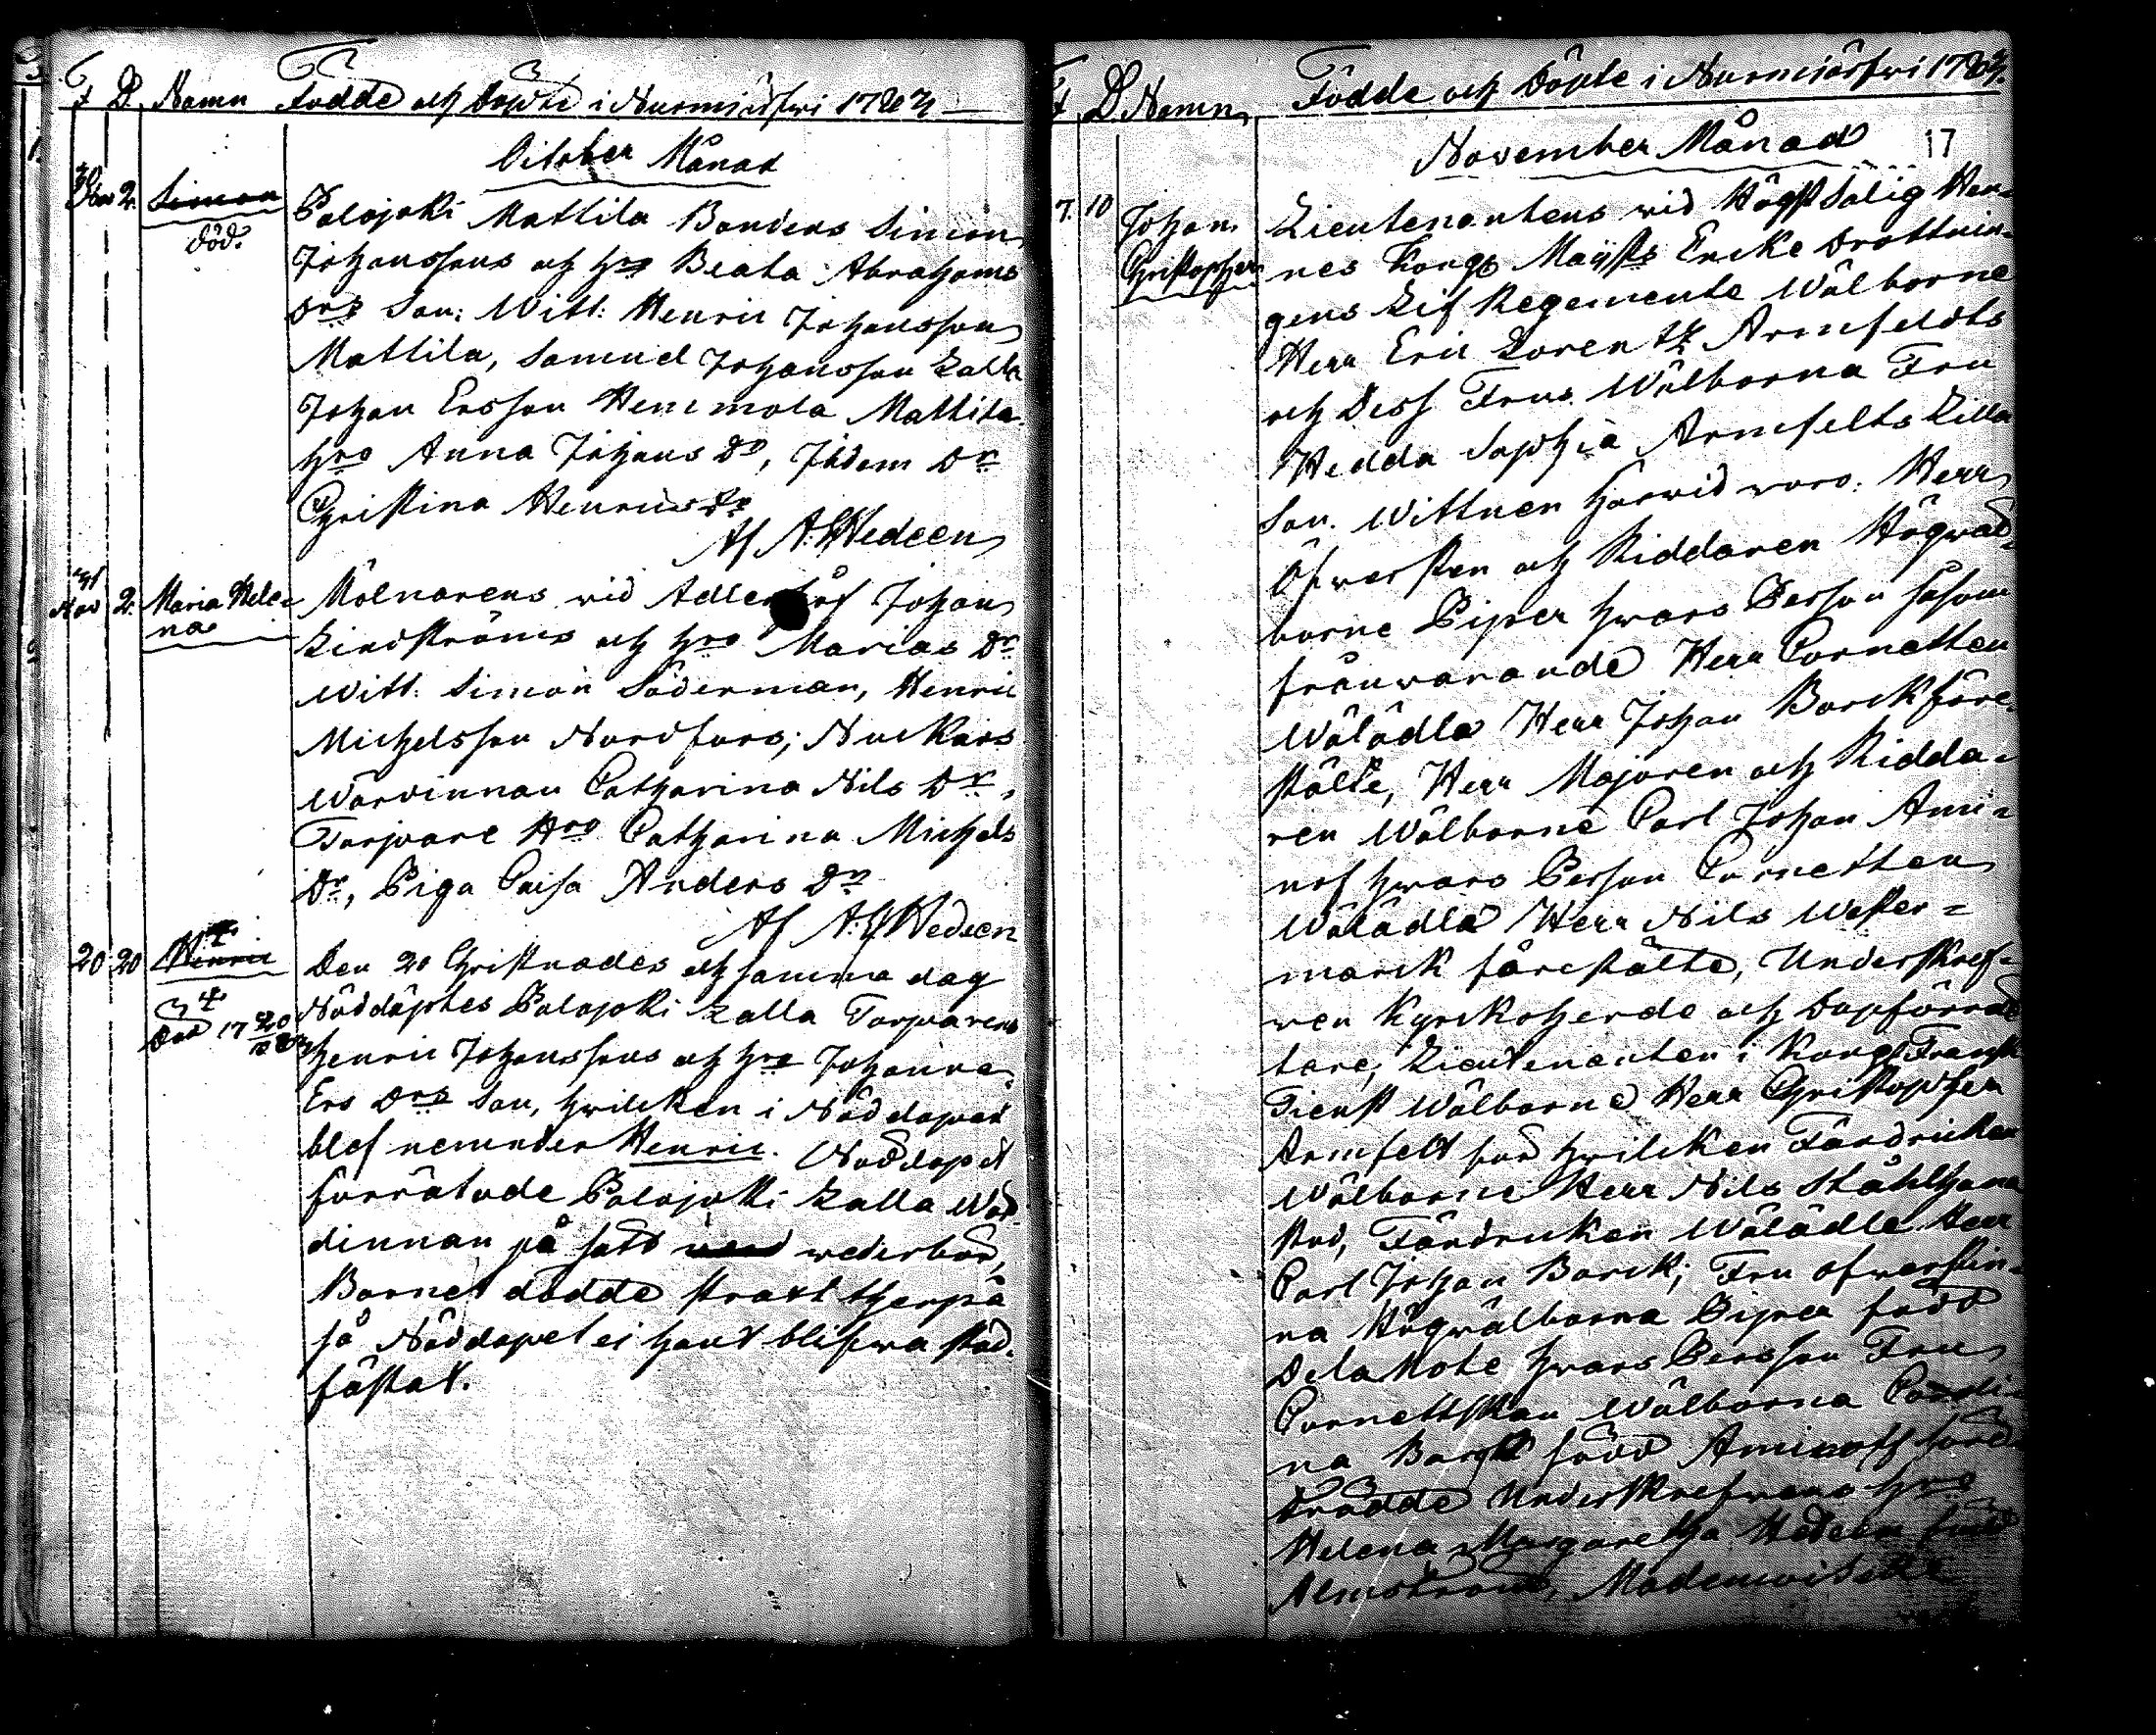 F D. Namn Födde och döpte i Nurmijärfwi 1787
October Månad
30 Nov 2. Simon Palojoki Mattila Bondens Simon
död. Johanssons och h:s Beata Abrahams
D:rs Son. Witt: Henric Johansson
Mattila, Samuel Johansson Lalla
Johan Ersson Hemmola Mattila
h:o Anna Johans D:r, Ibidem D:r
Christina Henrics D:r
Af A: Hedeen
Nov 2. Maria Hele- Mölnarens wid Adlerhof Johan
na Lindströms och h:s Marias D:r
Witt: Simon Söderman, Henric
Michelsson Nordfors, Nuckars
Wärdinnan Catharina Nils D:r,
Torpare H:o Catharina Michels
D:r, Piga Caisa Anders D:r
Af A: Hedeen
20 20 Henric Den 20 Christnades och samma dag
Nöddöptes Palojoki Lalla Torparens
död 17 Henric Johanssons och h:s Johanna
Ers D:rs Son, hwilcken i Nöddopet
blef nemnder Henric. Nöddopet
förrätade Palojoki Lalla Wär-
dinnan på satt wederbör,
Barnet dödde straxt therpå
så Nöddopet ei hant blifwa stad-
fästat.
F D Namn Födde och Döpte i Nurmijärfwi 1787.
November Månad 17
7. 10 Johan Lieutenantens wid Högst Salig Hen-
Christopher nes Kongl Maij:ts Encke Drottnin-
gens Lif Regemente Wälborne
Herr Eric Lorentz Armfeldts
och Dess Frus Wälborna Fru
Hedda Sophia Armfelts Lilla
Son. Wittnen härwid woro: Herr
Öfwersten och Riddaren Högwäl-
borne Piper hwars Person såsom
frånwarande Herr Cornetten
Wälädla Herr Johan Borck före-
stälte, Herr Majoren och Ridda-
ren Wälborne Carl Johan Ami-
nof hwars Person Cornetten
Wälädla Herr Nils Wester-
marck förestälte, Underskref-
wen Kyrckoherde och Dopförrät-
tare, Lieutenanten i Kongl Fransk
Tienst Wälborne Herr Christopher
Armfelt för hwilcken Fändricken
Wälborne Herr Nils Stählhane
stod, Fändricken Wälädle Herr
Carl Johan Borck; Fru Öfwerstin-
na Högwälborna Piper född
De la Mote hwars Person Fru
Cornettskan Wälborna
na Borck född Aminoff
trädde Underskrefwens h:o
Helena Margaretha Hedeen född
Almström, Mademoiselle